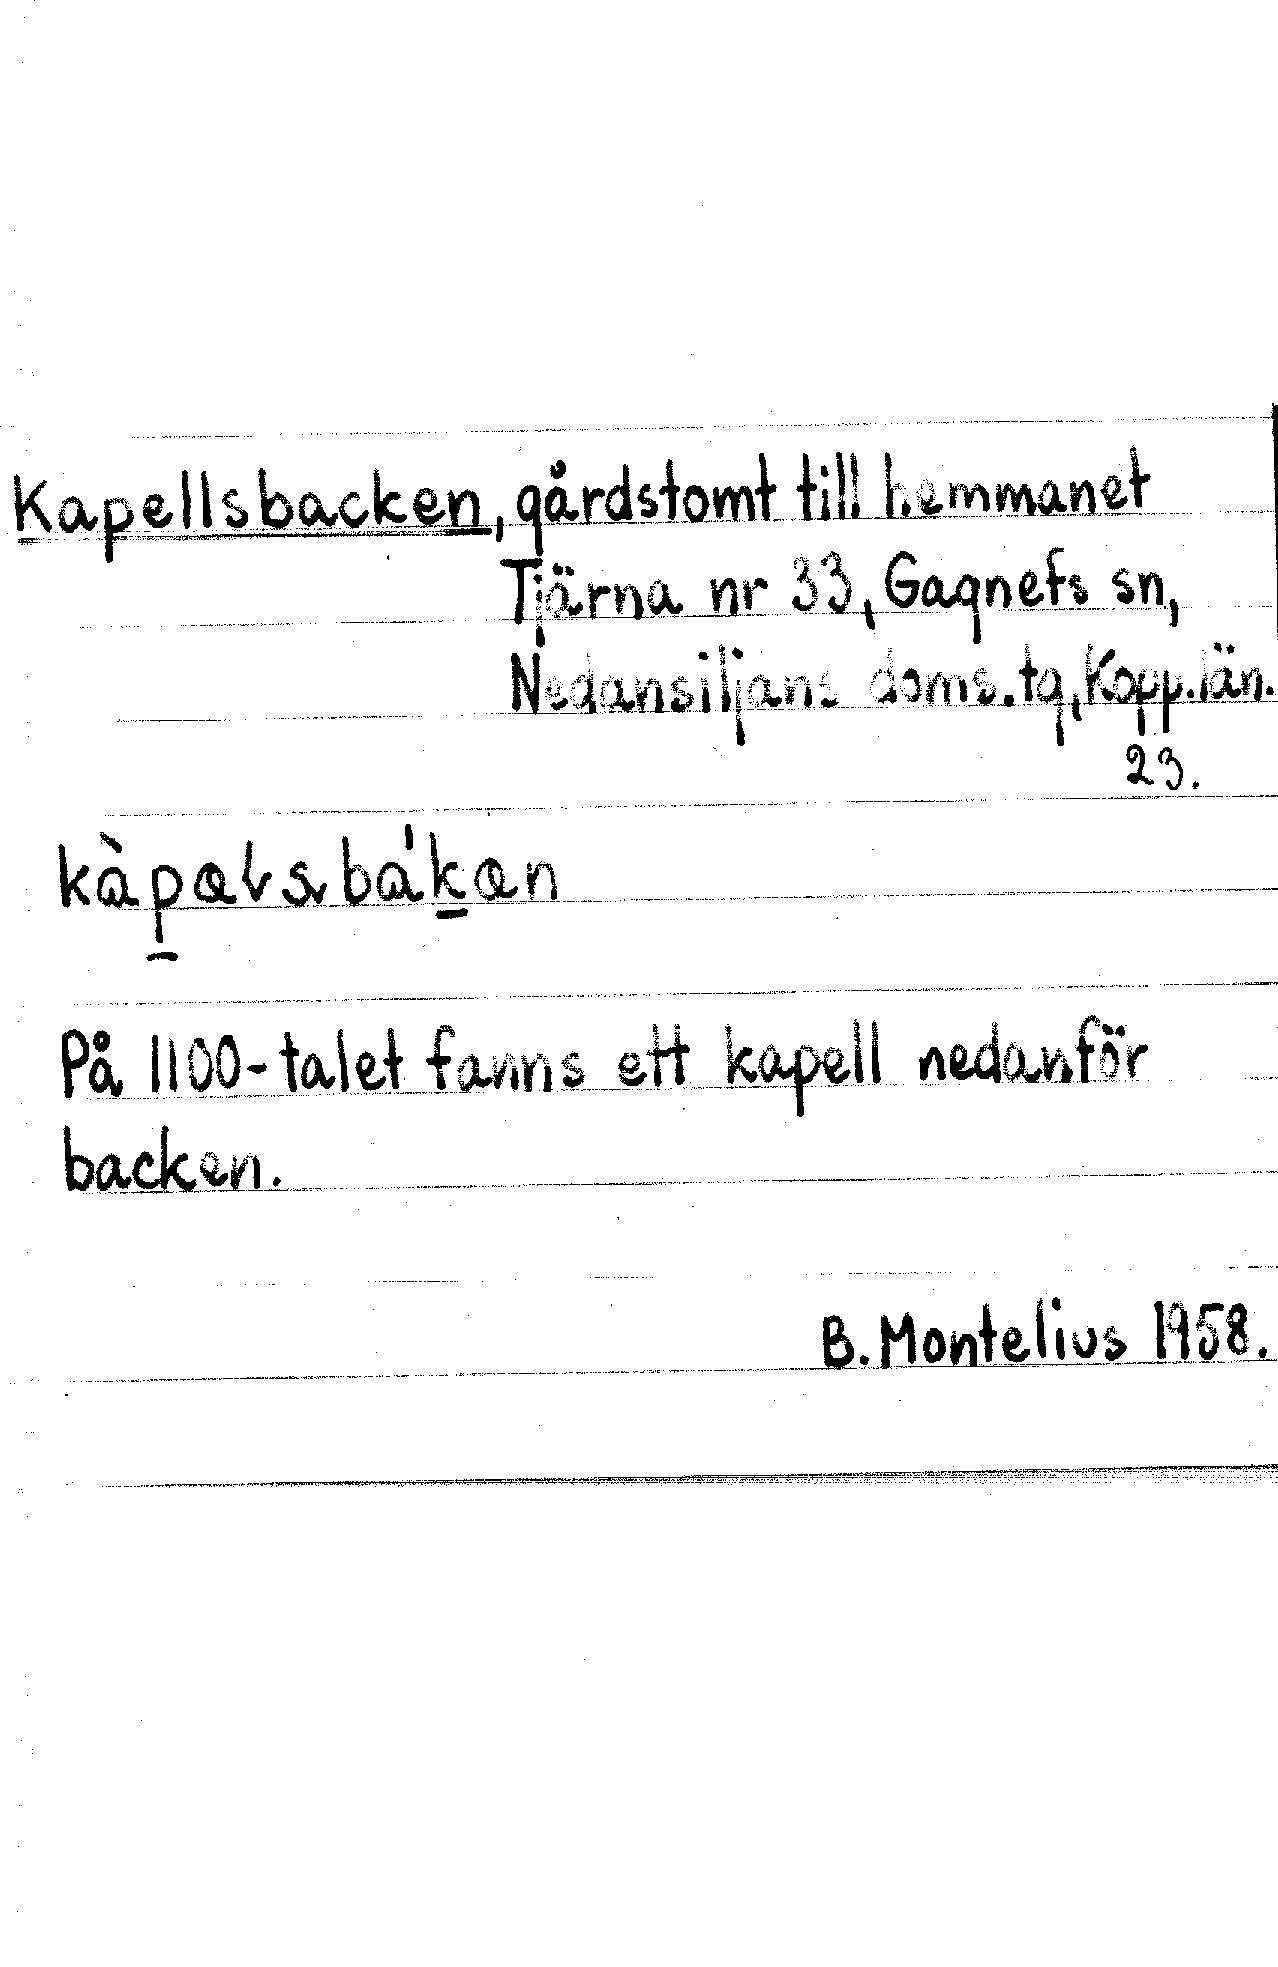 Kapellsbacken, gårdstomt till hemmanet
Tjärna nr 33, Gagnefs sn,
Nedansiljans doms.tg, Kopp.län.
23.
På 1100-talet fanns ett kapell nedanför
backen.
B. Montelius 1958.